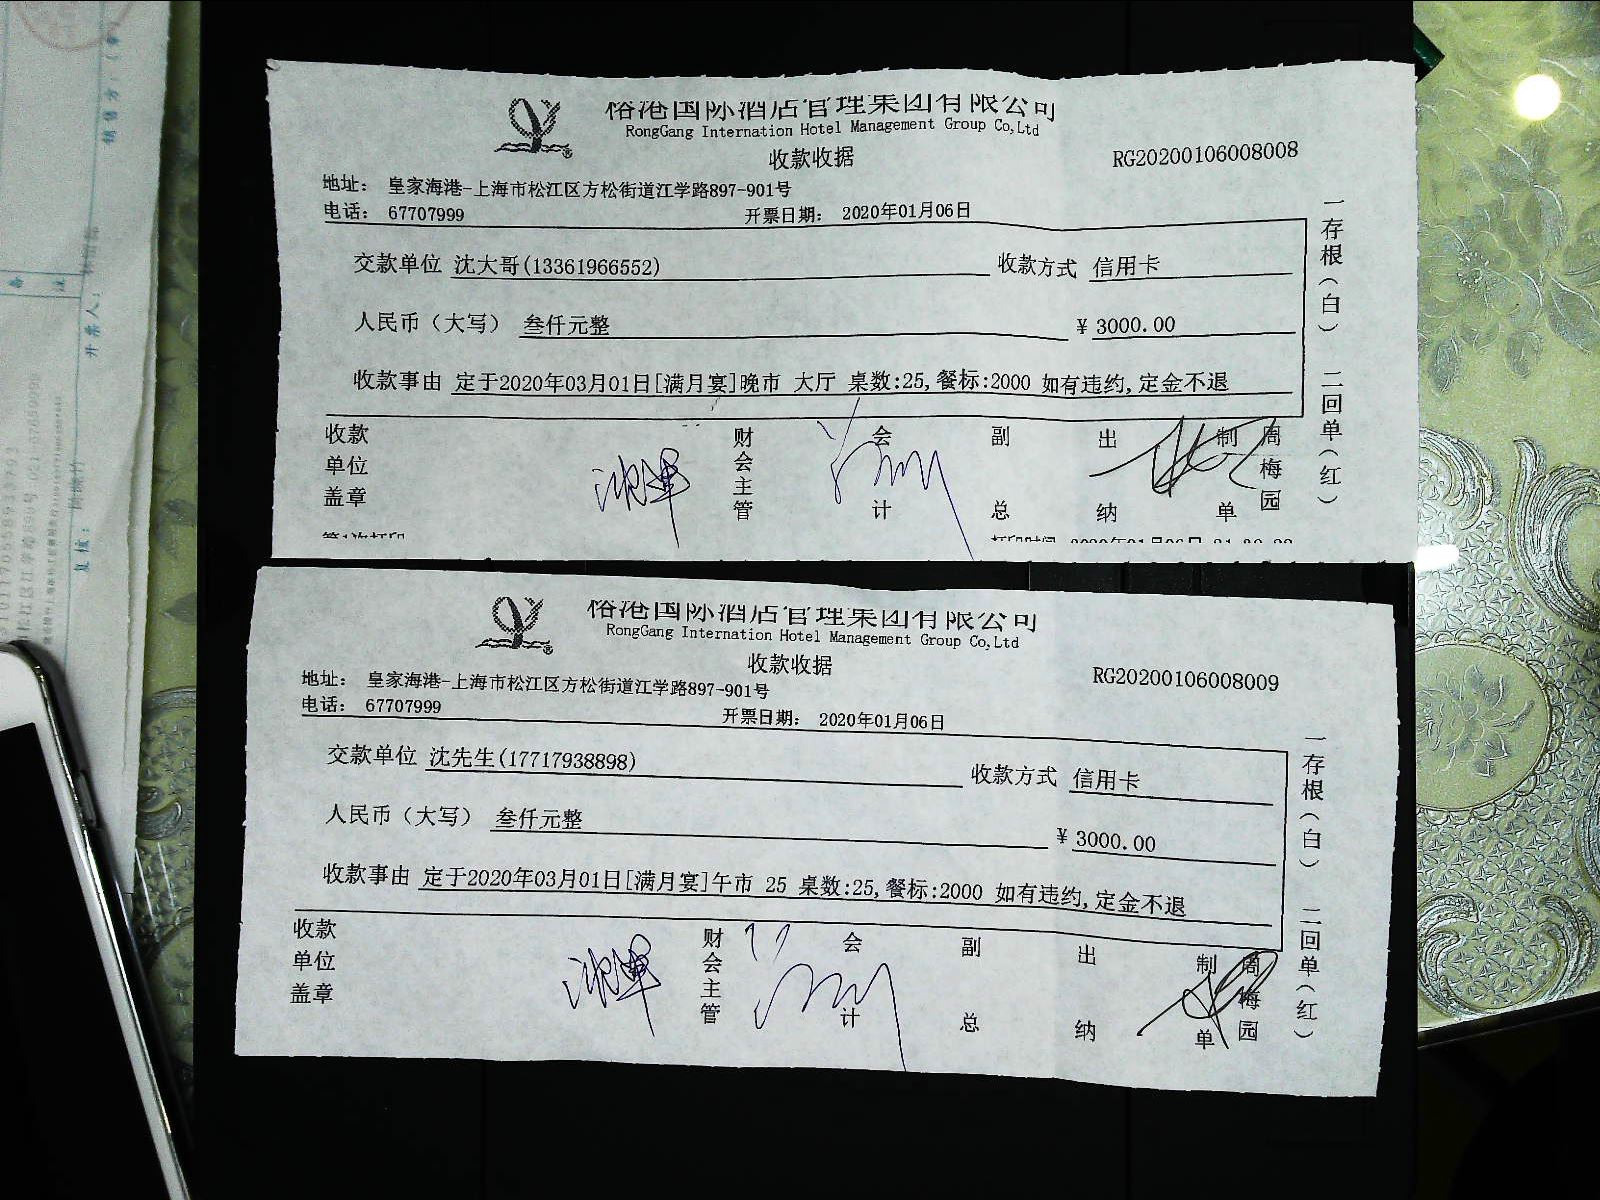 榕港国际酒店管理集团有限公司
RongGang Internation Hotel Management Group Co,Ltd
收款收据
RG20200106008008
地址： 皇家海港-上海市松江区方松街道江学路897-901号
电话： 67707999 开票日期： 2020年01月06日
交款单位 沈大哥(13361966552) 收款方式 信用卡
人民币（大写） 叁仟元整 ¥ 3000.00
收款事由 定于2020年03月01日[满月宴]晚市 大厅 桌数:25,餐标:2000 如有违约,定金不退
收款单位盖章 财会主管 会计 副总 出纳 制单 周梅园
一存根（白） 二回单（红）
第1次打印
榕港国际酒店管理集团有限公司
RongGang Internation Hotel Management Group Co,Ltd
收款收据
RG20200106008009
地址： 皇家海港-上海市松江区方松街道江学路897-901号
电话： 67707999 开票日期： 2020年01月06日
交款单位 沈先生(17717938898) 收款方式 信用卡
人民币（大写） 叁仟元整 ¥ 3000.00
收款事由 定于2020年03月01日[满月宴]午市 25 桌数:25,餐标:2000 如有违约,定金不退
收款单位盖章 财会主管 会计 副总 出纳 制单 周梅园
一存根（白） 二回单（红）
销售方：（章）
备注
开票人：
复核：